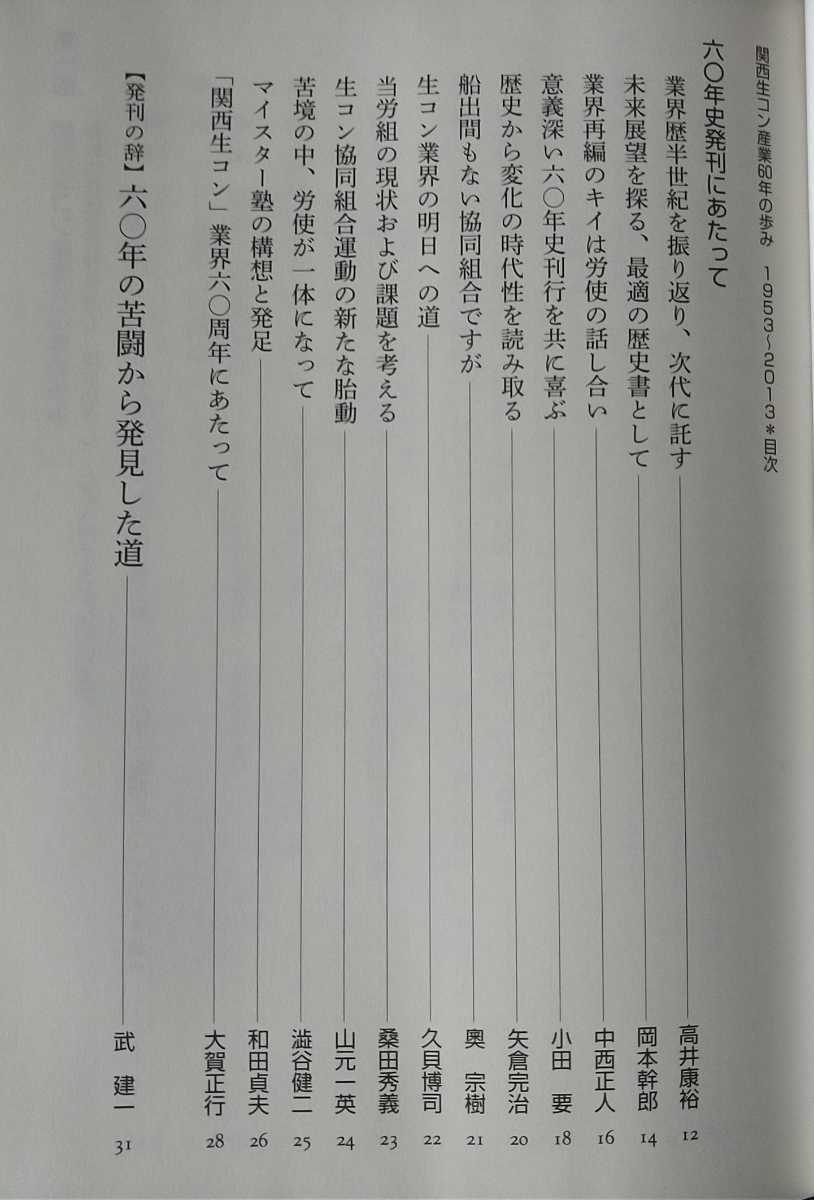 関西生コン産業60年の歩み 1953〜2013＊目次
六〇年史発刊にあたって
業界歴半世紀を振り返り、次代に託す 高井康裕 12
未来展望を探る、最適の歴史書として 岡本幹郎 14
業界再編のキイは労使の話し合い 中西正人 16
意義深い六〇年史刊行を共に喜ぶ 小田 要 18
歴史から変化の時代性を読み取る 矢倉完治 20
船出間もない協同組合ですが 奥 宗樹 21
生コン業界の明日への道 久貝博司 22
当労組の現状および課題を考える 桑田秀義 23
生コン協同組合運動の新たな胎動 山元一英 24
苦境の中、労使が一体になって 澁谷健二 25
マイスター塾の構想と発足 和田貞夫 26
「関西生コン」業界六〇周年にあたって 大賀正行 28
【発刊の辞】六〇年の苦闘から発見した道 武 建一 31